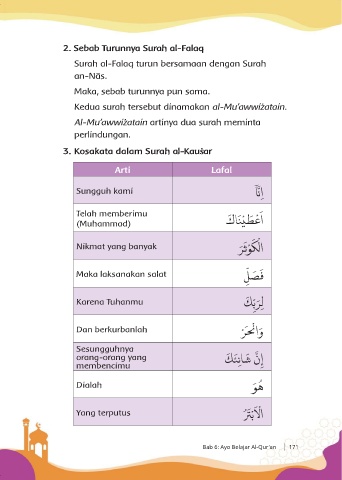 2. Sebab Turunnya Surah al-Falaq
Surah al-Falaq turun bersamaan dengan Surah
an-Nās.
Maka, sebab turunnya pun sama.
Kedua surah tersebut dinamakan al-Mu'awwiżatain.
Al-Mu'awwiżatain artinya dua surah meminta
perlindungan.
3. Kosakata dalam Surah al-Kauṡar
Arti Lafal
Sungguh kami اِنَّآ
Telah memberimu
(Muhammad) اَعْطَيْنٰكَ
Nikmat yang banyak الْكَوْثَرَ
Maka laksanakan salat فَصَلِّ
Karena Tuhanmu لِرَبِّكَ
Dan berkurbanlah وَانْحَرْ
Sesungguhnya
orang-orang yang
membencimu اِنَّ شَانِئَكَ
Dialah هُوَ
Yang terputus الْاَبْتَرُ
Bab 6: Ayo Belajar Al-Qur'an | 171